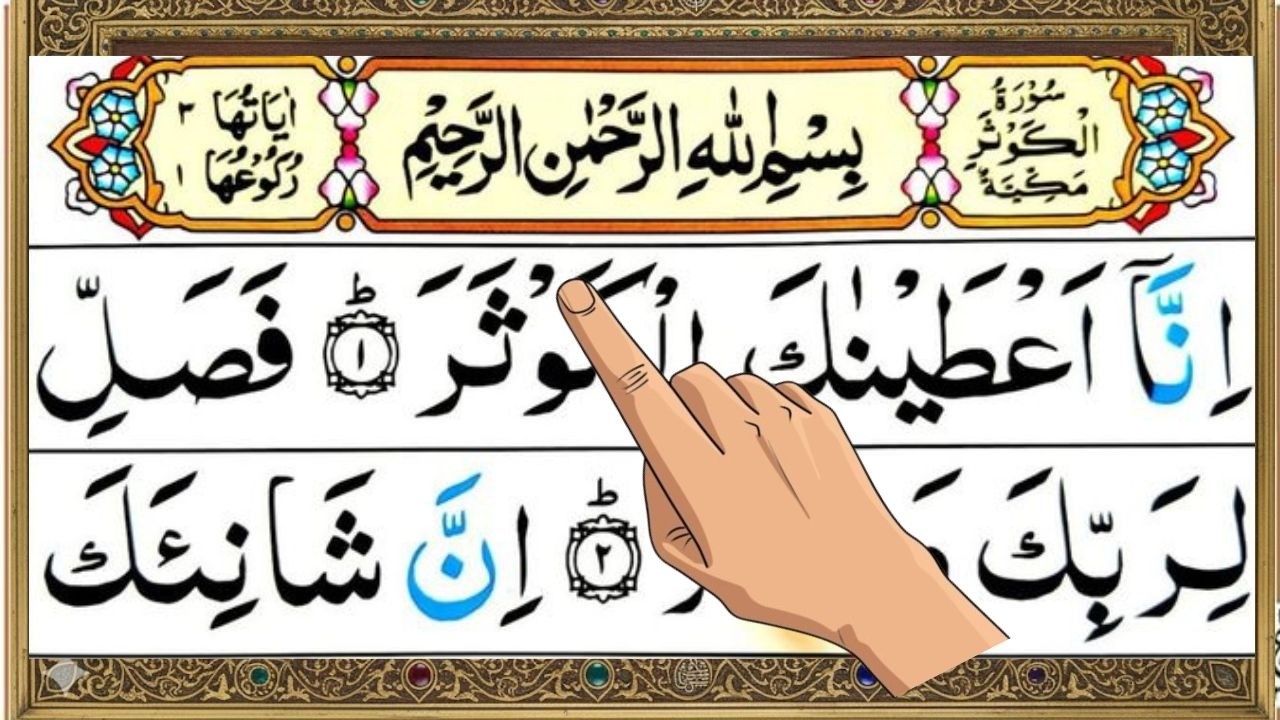 سُوْرَةُ الْكَوْثَرِ مَكِّيَّةٌ
بِسْمِ اللّٰهِ الرَّحْمٰنِ الرَّحِيْمِ
اٰيَاتُهَا ٣
رُكُوْعُهَا ١
اِنَّاۤ اَعْطَيْنٰكَ الْكَوْثَرَ ؕ ١ فَصَلِّ
لِرَبِّكَ ؕ ٢ اِنَّ شَانِئَكَ